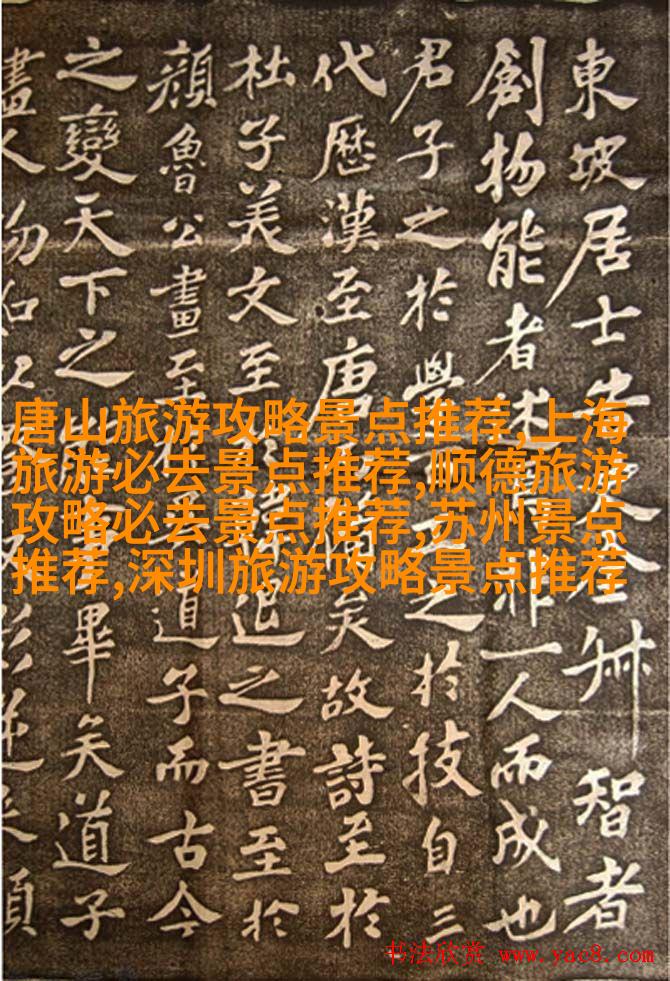 東坡居士智者
創物能者非一人而成也
君子之於學之於技自三
代歷漢至唐備矣故詩至於
杜子美文至於韓退之書至於
顏魯公畫至道子而古今
之變天下之事畢矣道子
畫人物
唐山旅游攻略景点推荐,上海
旅游必去景点推荐,顺德旅游
攻略必去景点推荐,苏州景点
推荐,深圳旅游攻略景点推荐
书法欣赏 www.yac8.com